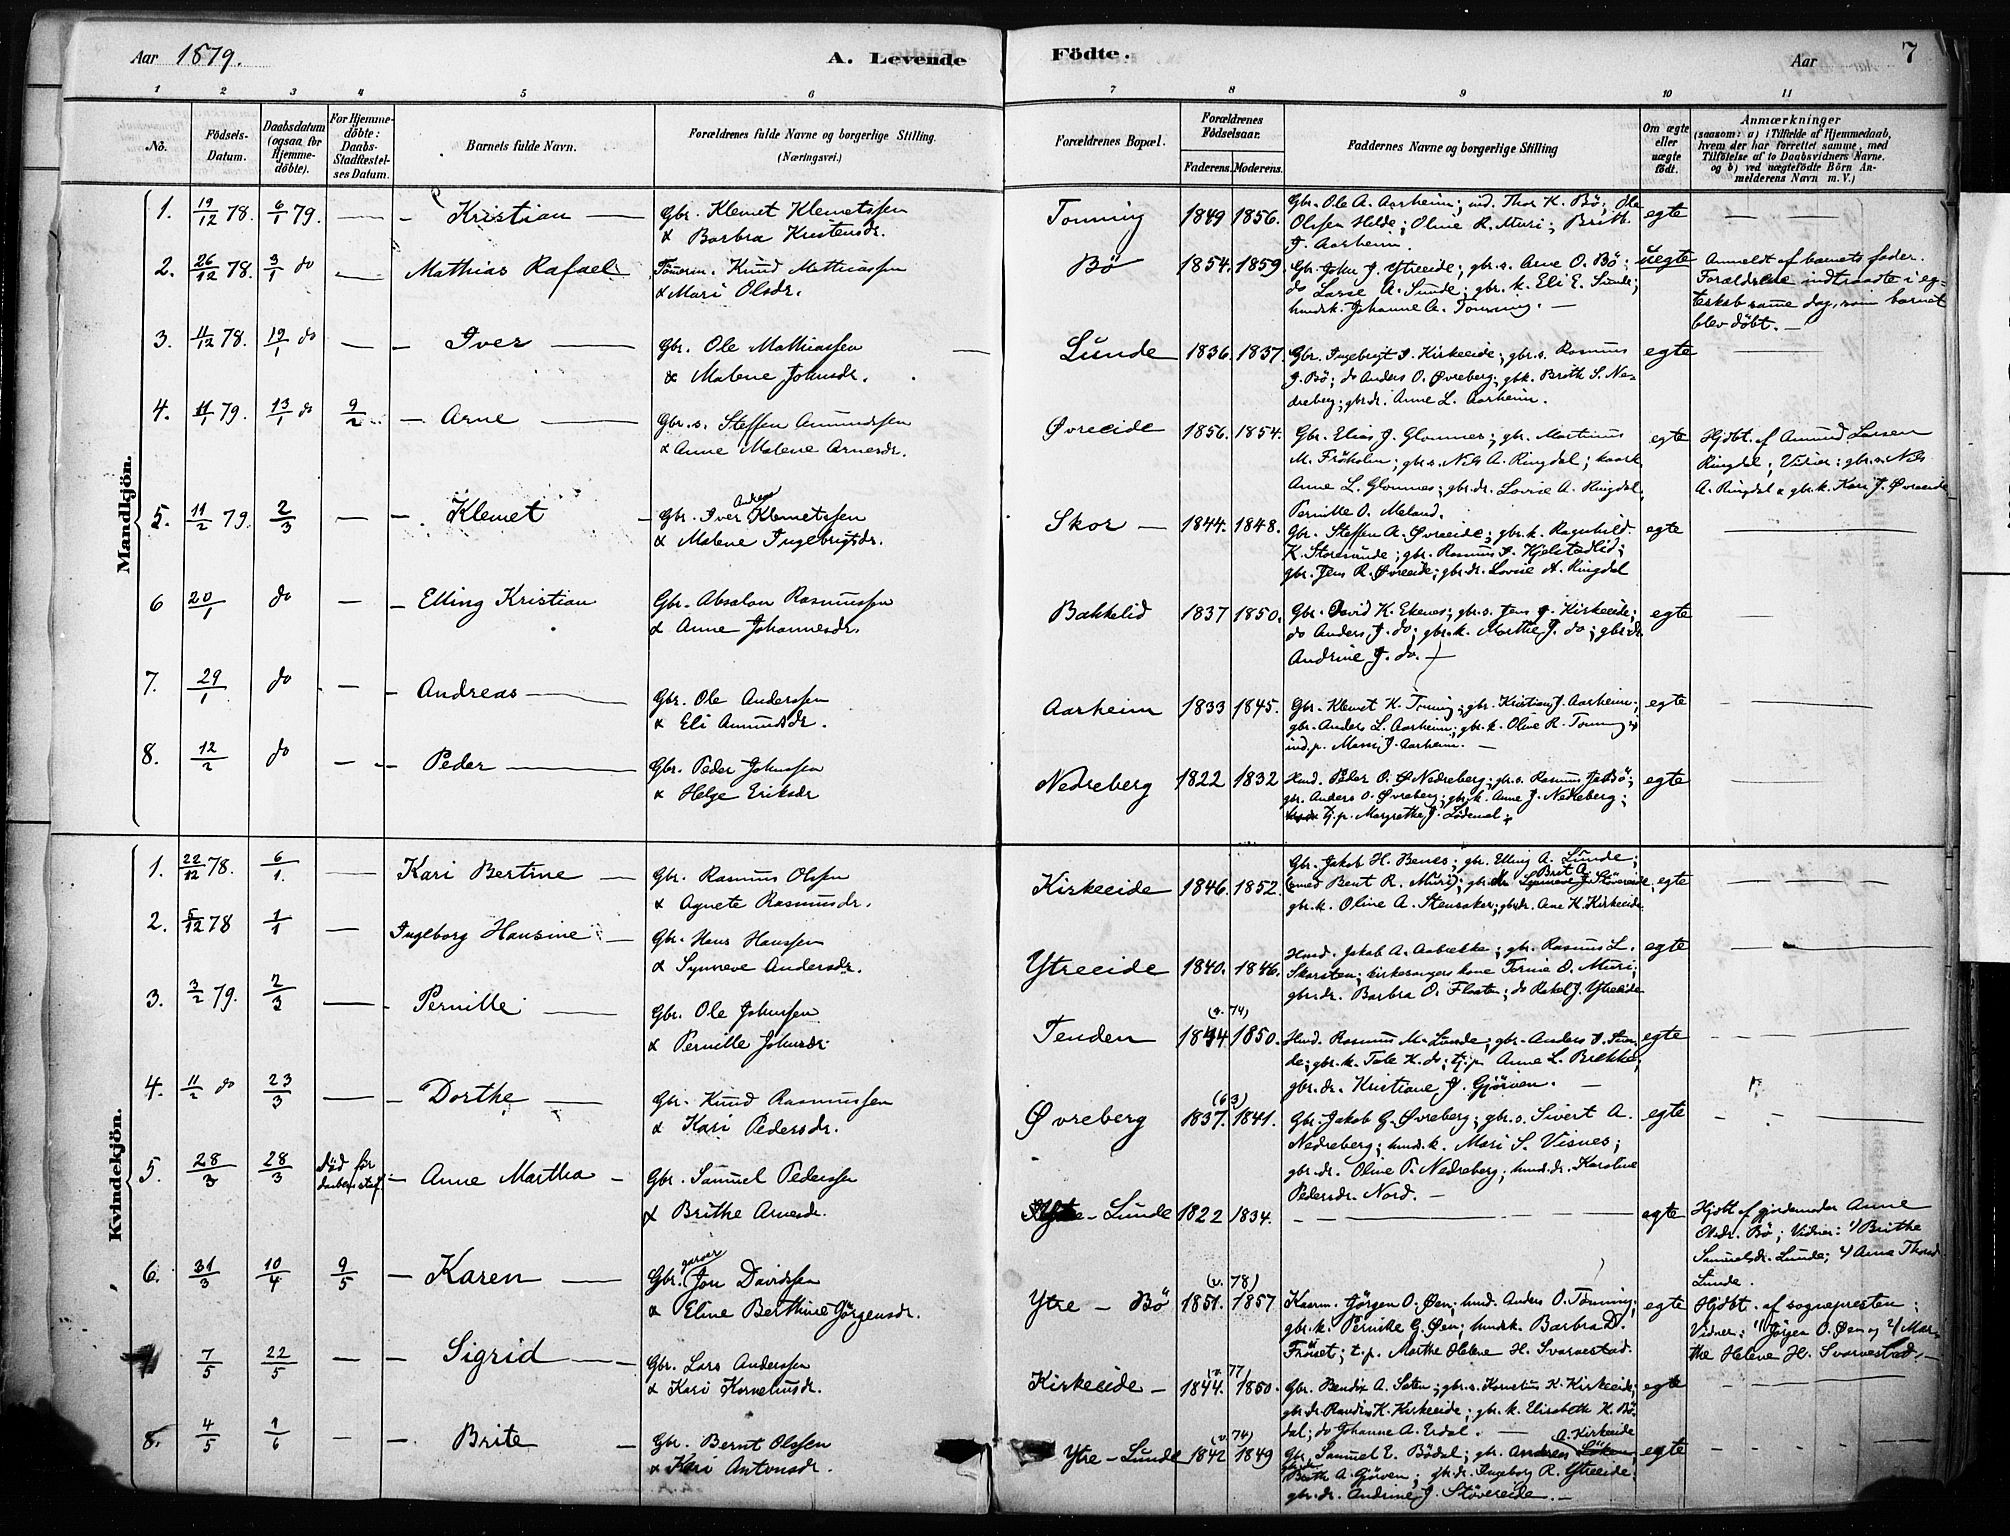 Aar 1879. A. Levende Födte. Aar 7
1 2 3 4 5 6 7 8 9 10 11
No. Födsels-Datum. Daabsdatum (ogsaa for Hjemmedöbte). For Hjemmedöbte: Daabs-Stadfestelses Datum. Barnets fulde Navn. Forældrenes fulde Navne og borgerlige Stilling. (Næringsvei.) Forældrenes Bopæl. Forældrenes Födselsaar. Faderens. Moderens. Faddernes Navne og borgerlige Stilling Om ægte eller uægte födt. Anmærkninger (saasom: a) i Tilfælde af Hjemmedaab, hvem der har forrettet samme, med Tilföielse af to Daabsvidners Navne. og b) ved uægtefödte Börn Anmelderens Navn m. V.)
Mandkjön.
1. 19/12 78. 6/1 79. — Kristian — Gbr. Klemet Klemetssen Tonning 1849 1856. Gbr. Ole A. Aarheim; ind. Thor K. Bø; Ole egte
& Barbra Kristensdr. Olssen Helde; Oline R. Muri; Brith
J. Aarheim.
2. 26/12 78. 3/1 do — Mathias Rafael Knud Mathiassen Bø 1854. 1859. Gbr. John J. Ytreeide; gbr.s. Arne O. Bø; uegte Anmeldt af barnets fader.
& Mari Olsdr. do Lasse A. Sunde; gbr.k. Eli E. Sunde; Forældrene indtraadte i eg-
husk. Johanne A. Tonning. — teskab same dag, som barnet
blev døbt. —
3. 11/12 78. 19/1 do — Iver — Gbr. Ole Mathiassen Lunde 1836 1837 Gbr. Ingebrigt J. Kirkeeide; gbr.s. Rasmus egte
& Malene Johnsdr. J. Bø; do Anders O. Øvreberg; gbk. Brith S. Ne-
dreberg; gbr.dr. Anne L. Aarheim.
4. 11/1 79. 13/1 do 9/2 — Arne — Gbr.s. Steffen Amundssen Øvreeide 1856. 1854. Gbr. Elias J. Glomnes; gbr. Martinus egte Hjdbt. af Amund Larsen
& Anne Malene Arnesdr. M. Frøholm; gbr.s. Nils A. Ringdal; Ringdal; Vidner: gbr.s. Nils
Anne L. Glomnes; gbr.dr. Lovise A. Ringdal, A. Ringdal & gbr.k. Kari J. Øvreeide
Pernille O. Meland.
5. 11/2 79. 2/3 — Klemet — Gbr. Iver Andreas Klemetssen Skor — 1844. 1848. Gbr. Steffen A. Øvreeide; gbr.k. Ragnhild egte
& Malene Ingebrigtsdr. K. Storesunde; gbr. Rasmus J. Hjelstadlid;
gbr. Jens R. Øvreeide; gbr.dr. Lovise A. Ringdal
6 20/1 do — Elling Kristian Gbr. Absalon Rasmussen Bakkelid 1837 1850. Gbr. David K. Ekenes; gbr.s. Jens J. Kirkeeide; egte
& Anne Johannesdr. do Anders J. do; gbr.k. Marthe J. do; gbr.dr.
Andrine J. do. —
7. 29/1 do — Andreas — Gbr. Ole Anderssen Aarheim 1833 1845. Gbr. Klemet K. Tonning; gbr. Kristian J. Aarheim; egte
& Eli Amundsdr. gbr. Anders L. Aarheim; gbr.k. Oline R. Tonning;
ind.p. Massi J. Aarheim. —
8. 12/2 do — Peder — Gbr. Peder Johnssen Nedreberg 1822 1832 Husd. Peder O. Nedreberg; gbr.s. Rasmus J. Bø; egte
& Helge Eriksdr gbr. Anders O. Øvreberg; gbr.k. Anne J. Nedreberg;
tj.p. Margrethe J. Lødemel.
Kvindekjön.
1. 22/12 78. 6/1. — Kari Bertine — Gbr. Rasmus Olssen Kirkeeide 1846. 1852. Gbr. Jakob H. Benes; gbr. Elling A. Lunde; egte
& Agnete Rasmusdr. Bent R. Muri; Brit A. Støvereide,
gbr.k. Oline A. Stensaker; gbr.dr. Ane K. Kirkeeide
2. 5/12 78 1/1 — Ingeborg Hansine — Gbr. Hans Hanssen Ytreeide 1840. 1846. Husd. Jakob A. Aabrekke; gbr. Rasmus L. egte
& Synneve Andersdr. Skarsten; kirkesangers kone Tornine D. Muri;
gbr.dr. Barbra O. Flaaten; do Rakel J. Ytreeide
3. 3/2 79. 2/3 — Pernille — Gbr. Ole Johnssen Tenden (v. 74) 1844 1850. Husd. Rasmus M. Lunde; gbr. Anders J. Sun- egte
& Pernille Johnsdr. de; gbr.k. Tale K. do; tj.p. Anne L. Brække;
gbr.dr. Kristiane J. Gjørven. —
4. 11/2 do 23/3 — Dorthe — Gbr. Knud Rasmussen Øvreberg (63) 1837. 1841. Gbr. Jakob G. Øvreberg; gbr.s. Sivert A. egte
& Kari Pedersdr. Nedreberg; husd.k. Mari S. Visnes;
gbr.dr. Oline P. Nedreberg; husd.dr. Karoline
Pedersdr. Nord. —
5. 28/3 28/3 død før daabens staf. Anne Martha — Gbr. Samuel Pederssen Ytre-Lunde 1822 1834. — egte Hjdbt. af jordemoder Anne
& Brithe Arnesdr. Olsdr. Bø; Vidner: 1/ Brithe
Samuelsdr. Lunde; 2/ Anna Thorsd.
Lunde.
6. 31/3 10/4 9/5 — Karen — Gbr. Jon Davidssen Ytre - Bø (v. 78) 1851. 1857 Kaarm. Jørgen O. Øen; husd. Anders O. Tonning; egte Hjdbt. af sognepresten;
& Eline Berthine Jørgensdr. gbr.k. Pernille G. Øen; husdk. Barbra D. Vidner: 1/ Jørgen O. Øen og 2/ Mar-
Frøiset; t.p. Marthe Helene H. Svarvestad. the Helene H. Svarvestad. —
7/5 22/5 — Sigrid — Gbr. Lars Anderssen Kirkeeide — (v. 77) 1844. 1850. Gbr. Bendix A. Sæten; gbr.s. Kornelius K. Kirkeeide; egte
& Kari Korneliusdr. gbr.dr. Randi K. Kirkeeide; gbr.k. Elisabeth K. Bø-
dal; do Johanne A. Erdal. —
8. 4/5 1/6 — Brite — Gbr. Bernt Olssen Ytre - Lunde (v. 74) 1842 1849 Gbr. Samuel E. Bødal; gbr. Andreas A. Kirkeeide egte
& Kari Antonsdr. Brith A. Gjørven; gbr.dr. Ingeborg R. Ytreeide.
gbr.dr. Andrine J. Støvereide. —